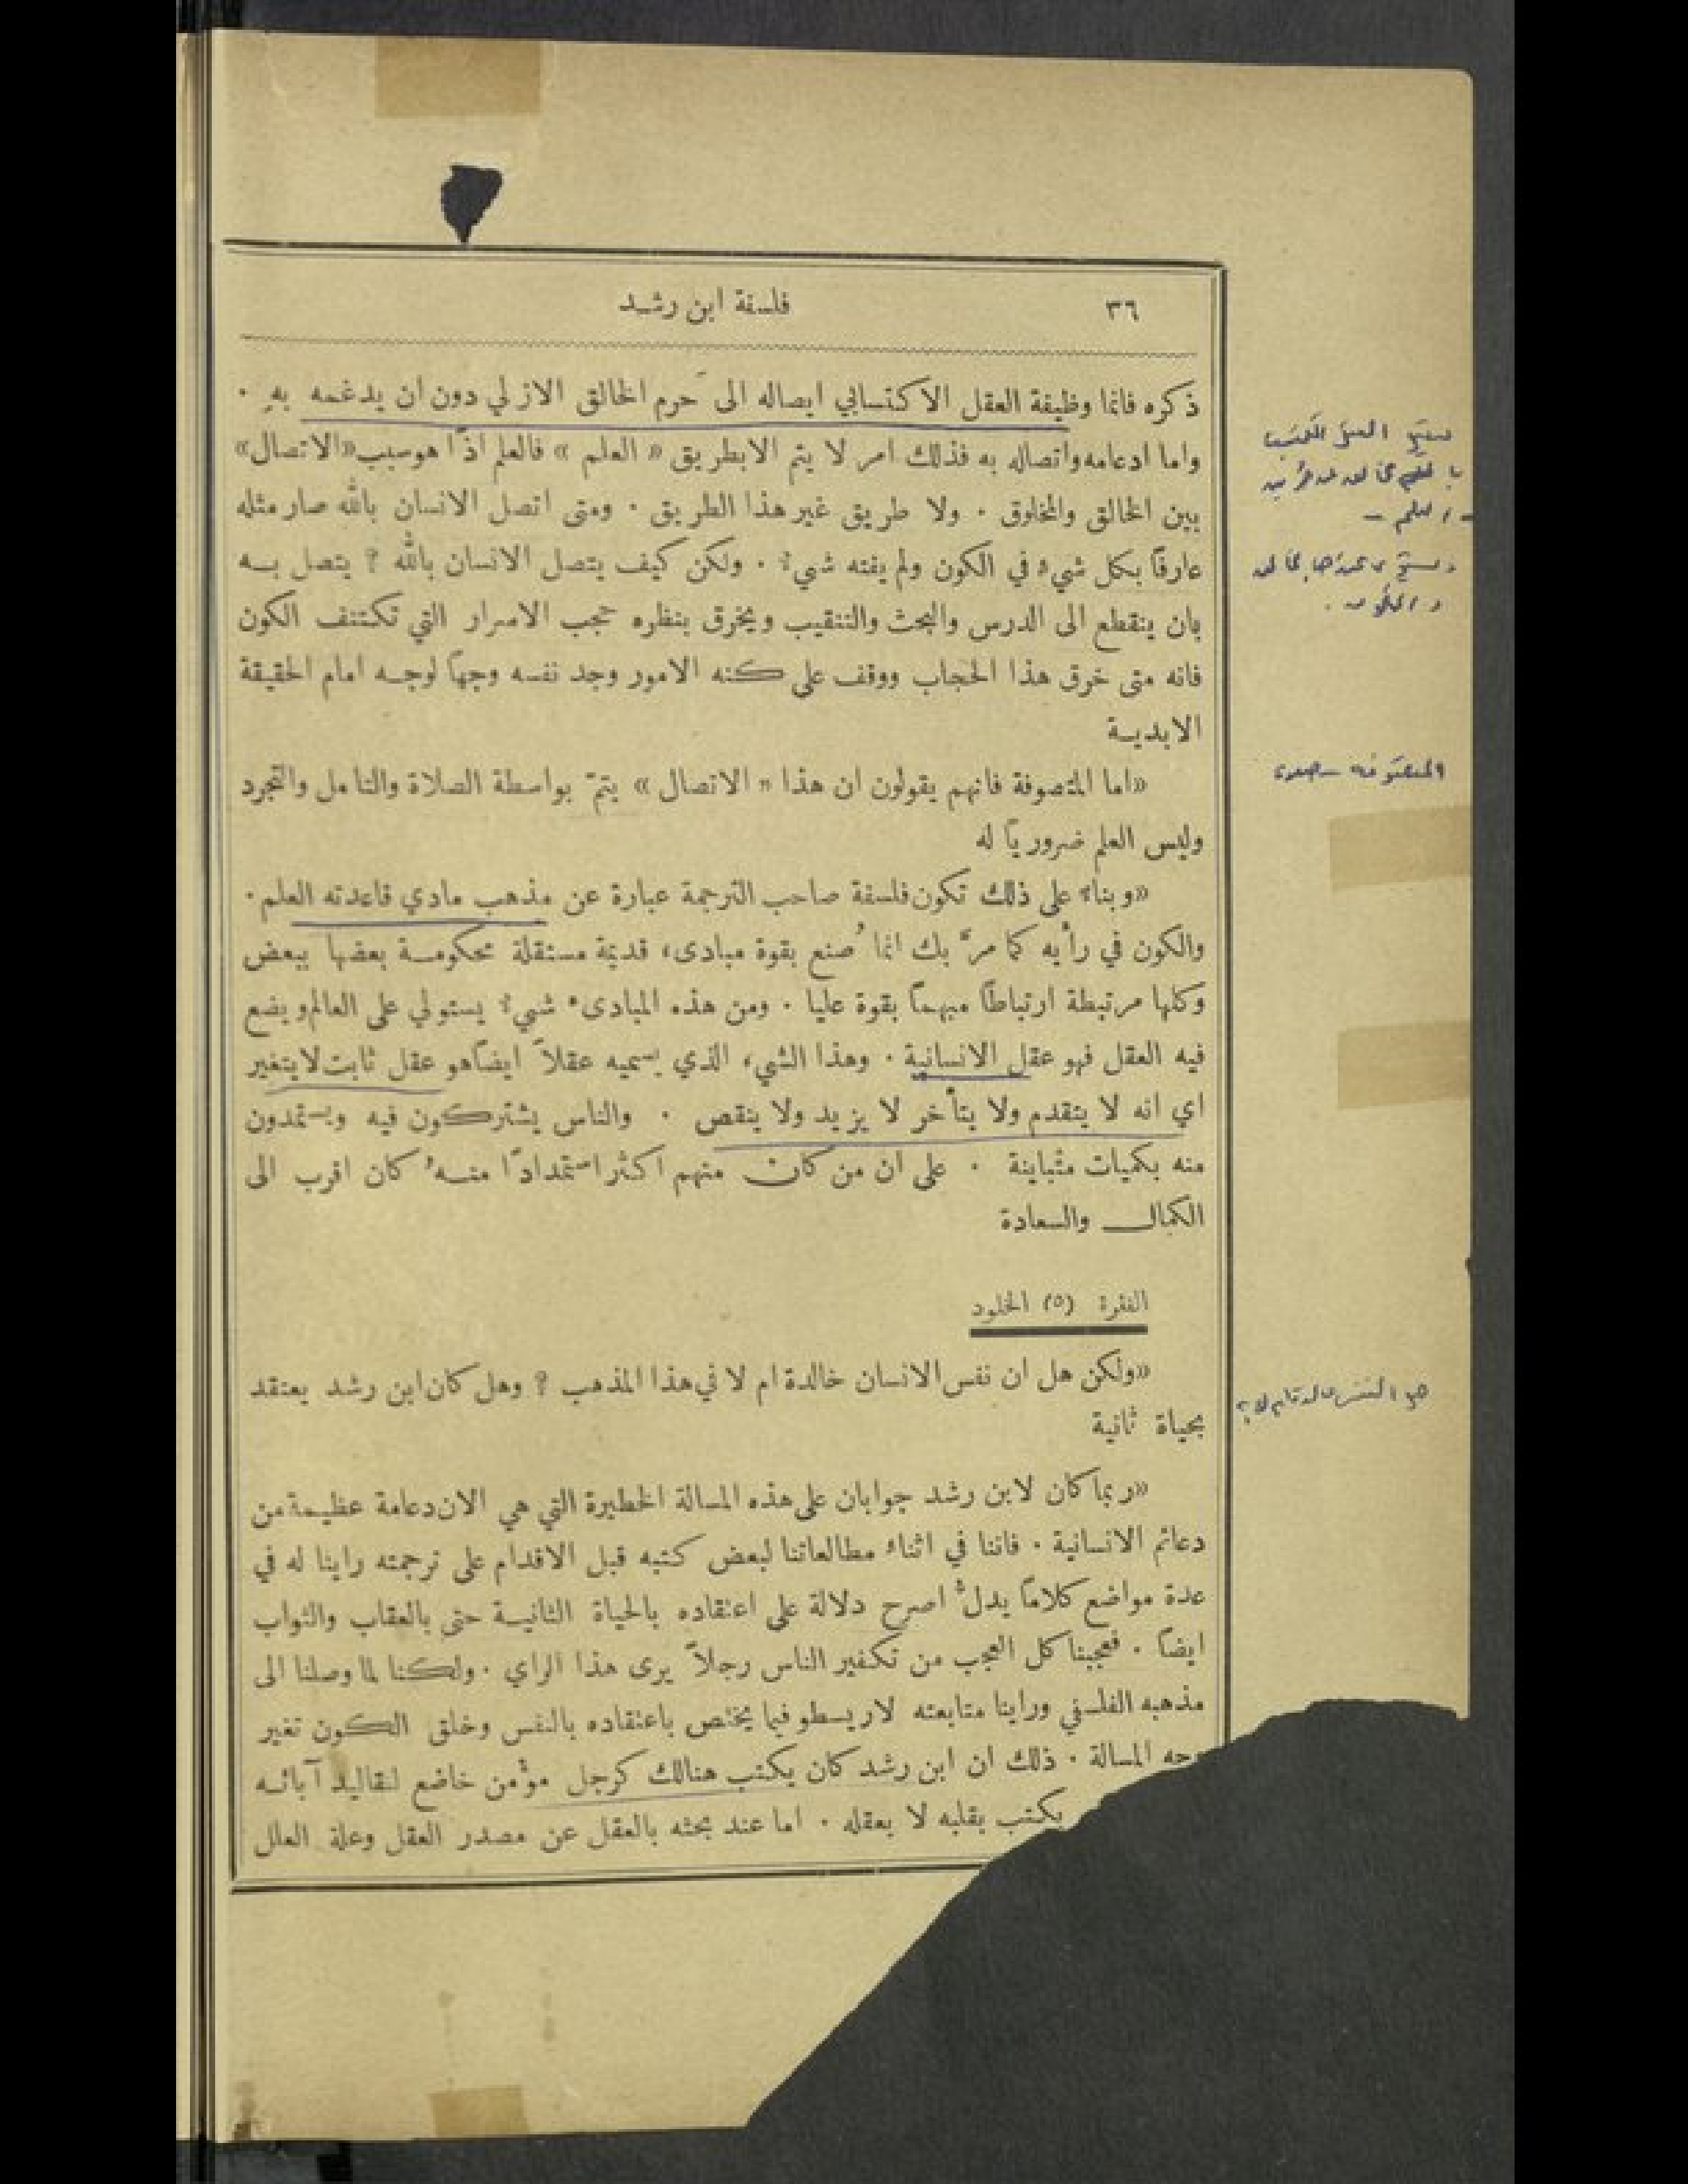 ٣٦
فلسفة ابن رشد
ذكره فانما وظيفة العقل الاكتسابي ايصاله الى حَرم الخالق الازلي دون ان يدغمه بهِ .
واما ادغامه واتصاله به فذلك امر لا يتم الا بطريق « العلم » فالعلم اذًا هو سبب «الاتصال»
بين الخالق والمخلوق . ولا طريق غير هذا الطريق . ومتى اتصل الانسان بالله صار مثله
عارفًا بكل شيءٍ في الكون ولم يفته شيءٌ . ولكن كيف يتصل الانسان بالله ؟ يتصل بــه
بان ينقطع الى الدرس والبحث والتنقيب ويخرق بنظره حجب الاسرار التي تكتنف الكون
فانه متى خرق هذا الحجاب ووقف على كنه الامور وجد نفسه وجهًا لوجــه امام الحقيقة
الابديــة
«اما المتصوفة فانهم يقولون ان هذا « الاتصال » يتمّ بواسطة الصلاة والتامل والتجرد
وليس العلم ضروريًا له
«وبناءً على ذلك تكون فلسفة صاحب الترجمة عبارة عن مذهب مادي قاعدته العلم .
والكون في رأيه كما مرَّ بك انما صُنع بقوة مبادىء قديمة مستقلة محكومــة بعضها ببعض
وكلها مرتبطة ارتباطًا مبهمًا بقوة عليا . ومن هذه المبادىء شيءٌ يستولي على العالم ويضع
فيه العقل فهو عقل الانسانية . وهذا الشيء الذي يسميه عقلاً ايضًا هو عقل ثابت لا يتغير
اي انه لا يتقدم ولا يتأخر لا يزيد ولا ينقص . والناس يشتركون فيه ويستمدون
منه بكميات متباينة . على ان من كان منهم اكثر استمدادًا منــهُ كان اقرب الى
الكمال والسعادة
الفقرة (٥) الخلود
«ولكن هل ان نفس الانسان خالدة ام لا في هذا المذهب ؟ وهل كان ابن رشد يعتقد
بحياة ثانية
«ربما كان لابن رشد جوابان على هذه المسالة الخطيرة التي هي الان دعامة عظيمة من
دعائم الانسانية . فاننا في اثناء مطالعاتنا لبعض كتبه قبل الاقدام على ترجمته راينا له في
عدة مواضع كلامًا يدلُّ اصرح دلالة على اعتقاده بالحياة الثانيــة حتى بالعقاب والثواب
ايضًا . فعجبنا كل العجب من تكفير الناس رجلاً يرى هذا الراي . ولكننا لما وصلنا الى
مذهبه الفلسفي وراينا متابعته لاريسطو فيما يختص باعتقاده بالنفس وخلق الكون تغير
وجه المسالة . ذلك ان ابن رشد كان يكتب هنالك كرجل مؤمن خاضع لتقاليد آبائــه
يكتب بقلبه لا بعقله . اما عند بحثه بالعقل عن مصدر العقل وعلة العلل
المتصوفه
هل النفس خالدة ام لا ؟